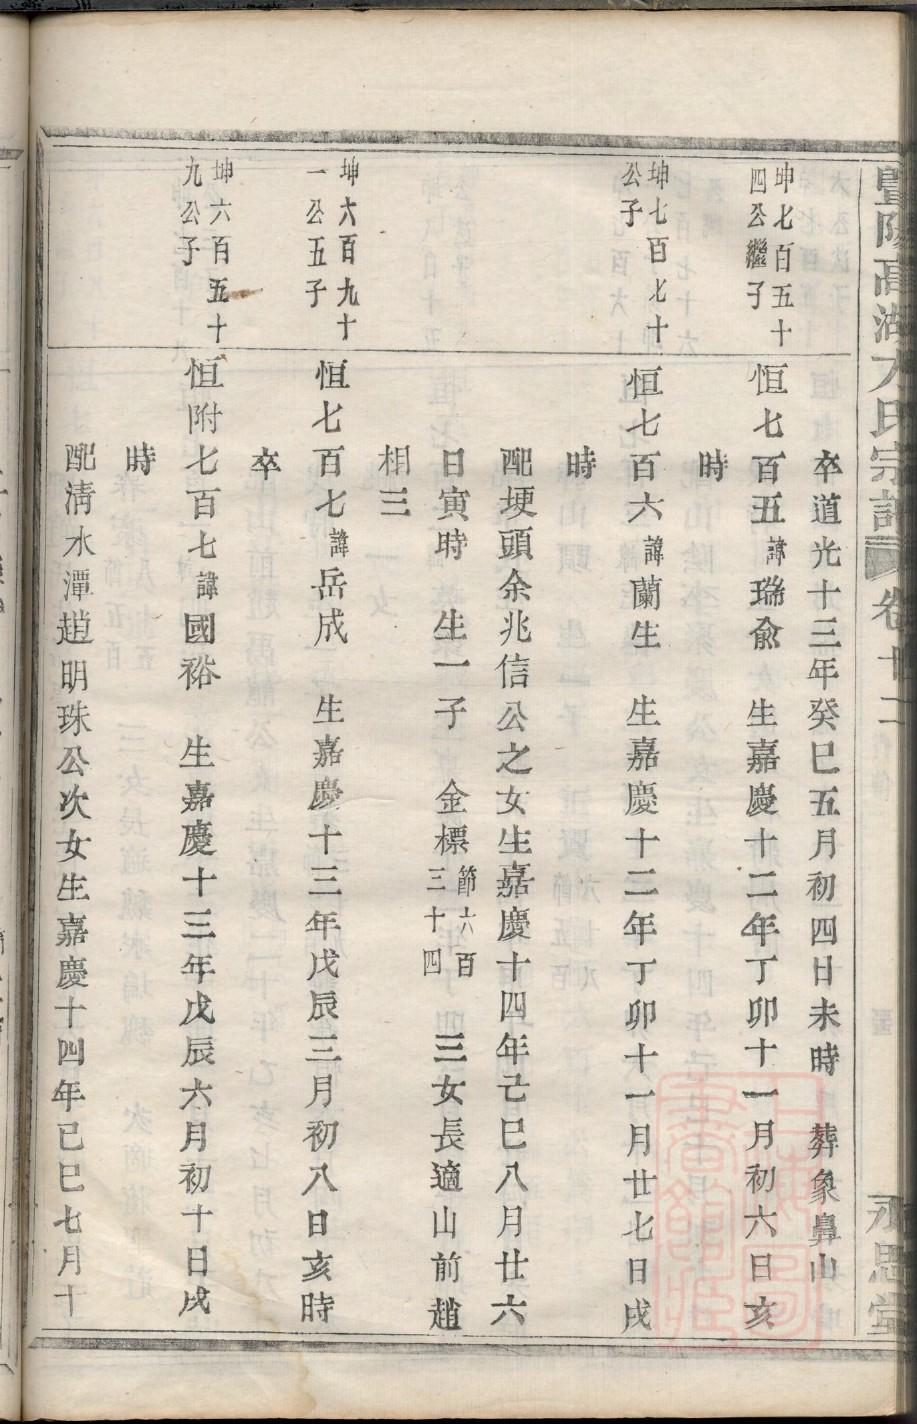 暨陽高湖方氏宗譜 卷廿二 永思堂
卒道光十三年癸巳五月初四日未時 葬象鼻山
坤七百五十
四公繼子
恒七百五諱瑞俞 生嘉慶十二年丁卯十一月初六日亥
時
坤七百七十
公子
恒七百六諱蘭生 生嘉慶十二年丁卯十一月廿七日戌
時
配埂頭余兆信公之女生嘉慶十四年己巳八月廿六
日寅時 生一子 金標節六百三十四 三女長適山前趙
相三
坤六百九十
一公五子
恒七百七諱岳成 生嘉慶十三年戊辰三月初八日亥時
卒
坤六百五十
九公子
恒附七百七諱國裕 生嘉慶十三年戊辰六月初十日戌
時
配清水潭趙明珠公次女生嘉慶十四年己巳七月十